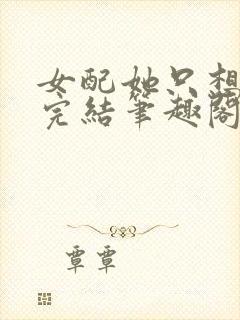 女配她只想
完結筆趣閣
覃覃